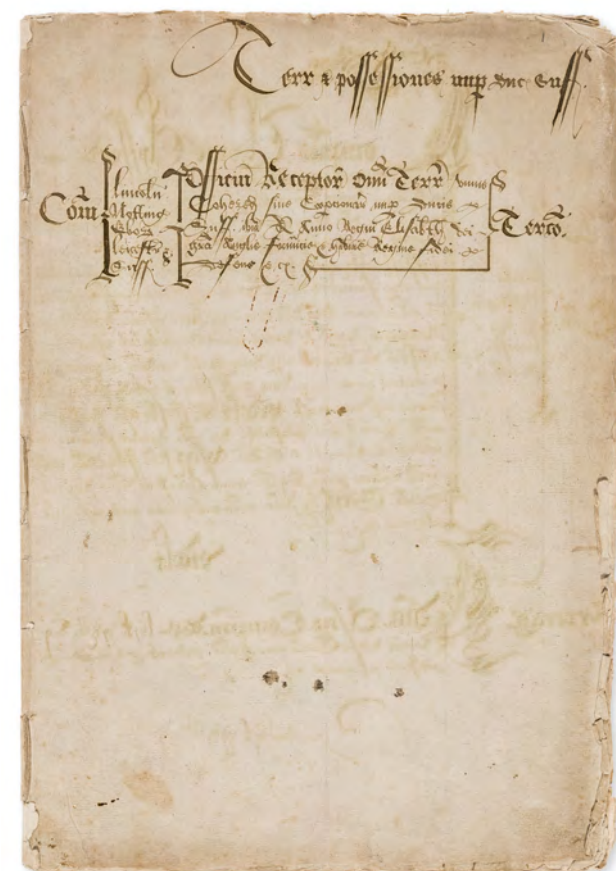 Terr & possessiones nup Duc Suff.
Com
Lincoln
Notting
Ebor
Leicestr
Suff
Officiu Receptor omi Terr unius
Cohered sive nup Ducis
Suff. Anno Regni Elisabeth dei
gra Anglie Francie & hibnie Regine fidei
Defens &c
Tercio.